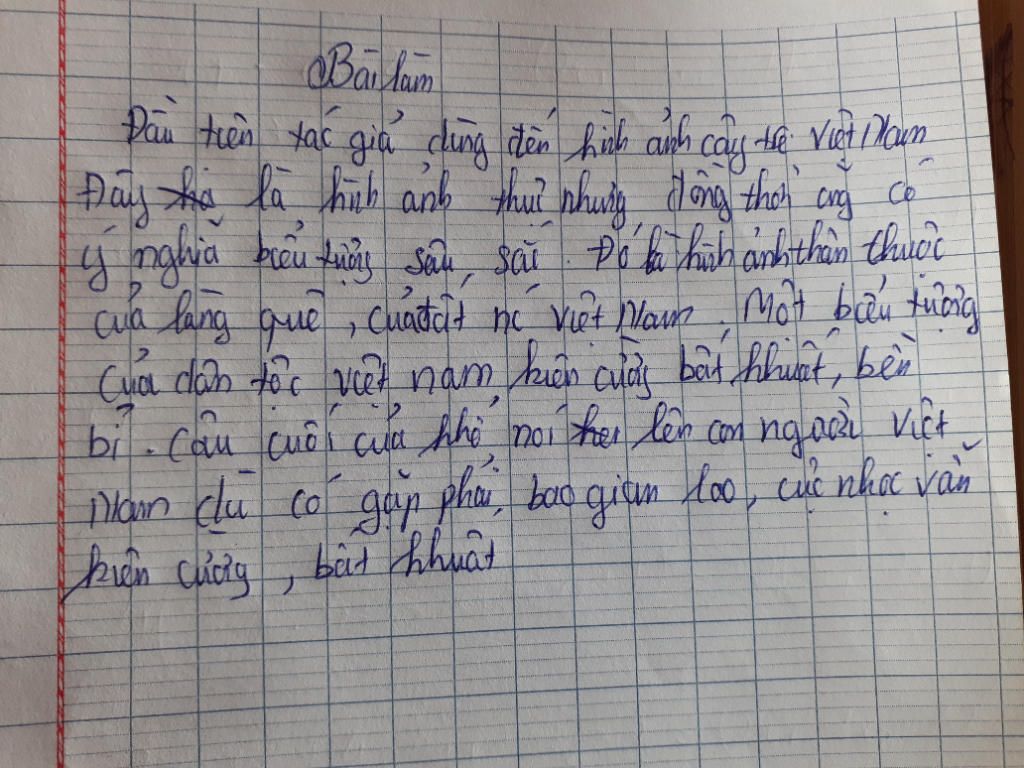 Bài làm
Đầu tiên tác giả dùng đến hình ảnh cây tre Việt Nam
Đây là hình ảnh thực nhưng đồng thời cũng có
ý nghĩa biểu tượng sâu sắc. Đó là hình ảnh thân thuộc
của làng quê, của đất nc Việt Nam. Một biểu tượng
của dân tộc việt nam kiên cường bất khuất, bền
bỉ. Câu cuối của khổ nói lên con người Việt
Nam dù có gặp phải, bao gian lao, cực nhọc vẫn
kiên cường, bất khuất